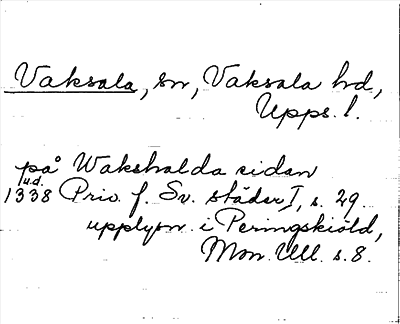 Vaksala, sn, Vaksala hd,
Upps. l.
på Wakshalda sidan
u.d.
1338 Priv. f. Sv. städer I, s. 29.
upplysn. i Peringskiöld,
Mon. Ull. s. 8.